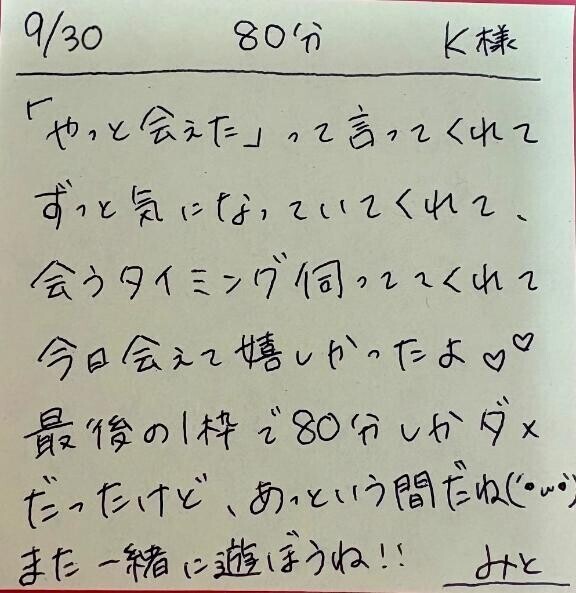 9/30 80分 K様
「やっと会えた」って言ってくれて
ずっと気になっていてくれて、
会うタイミング伺っててくれて
今日会えて嬉しかったよ♡♡
最後の1枠で80分しかダメ
だったけど、あっという間だね(´•ω•`)
また一緒に遊ぼうね!!
みと